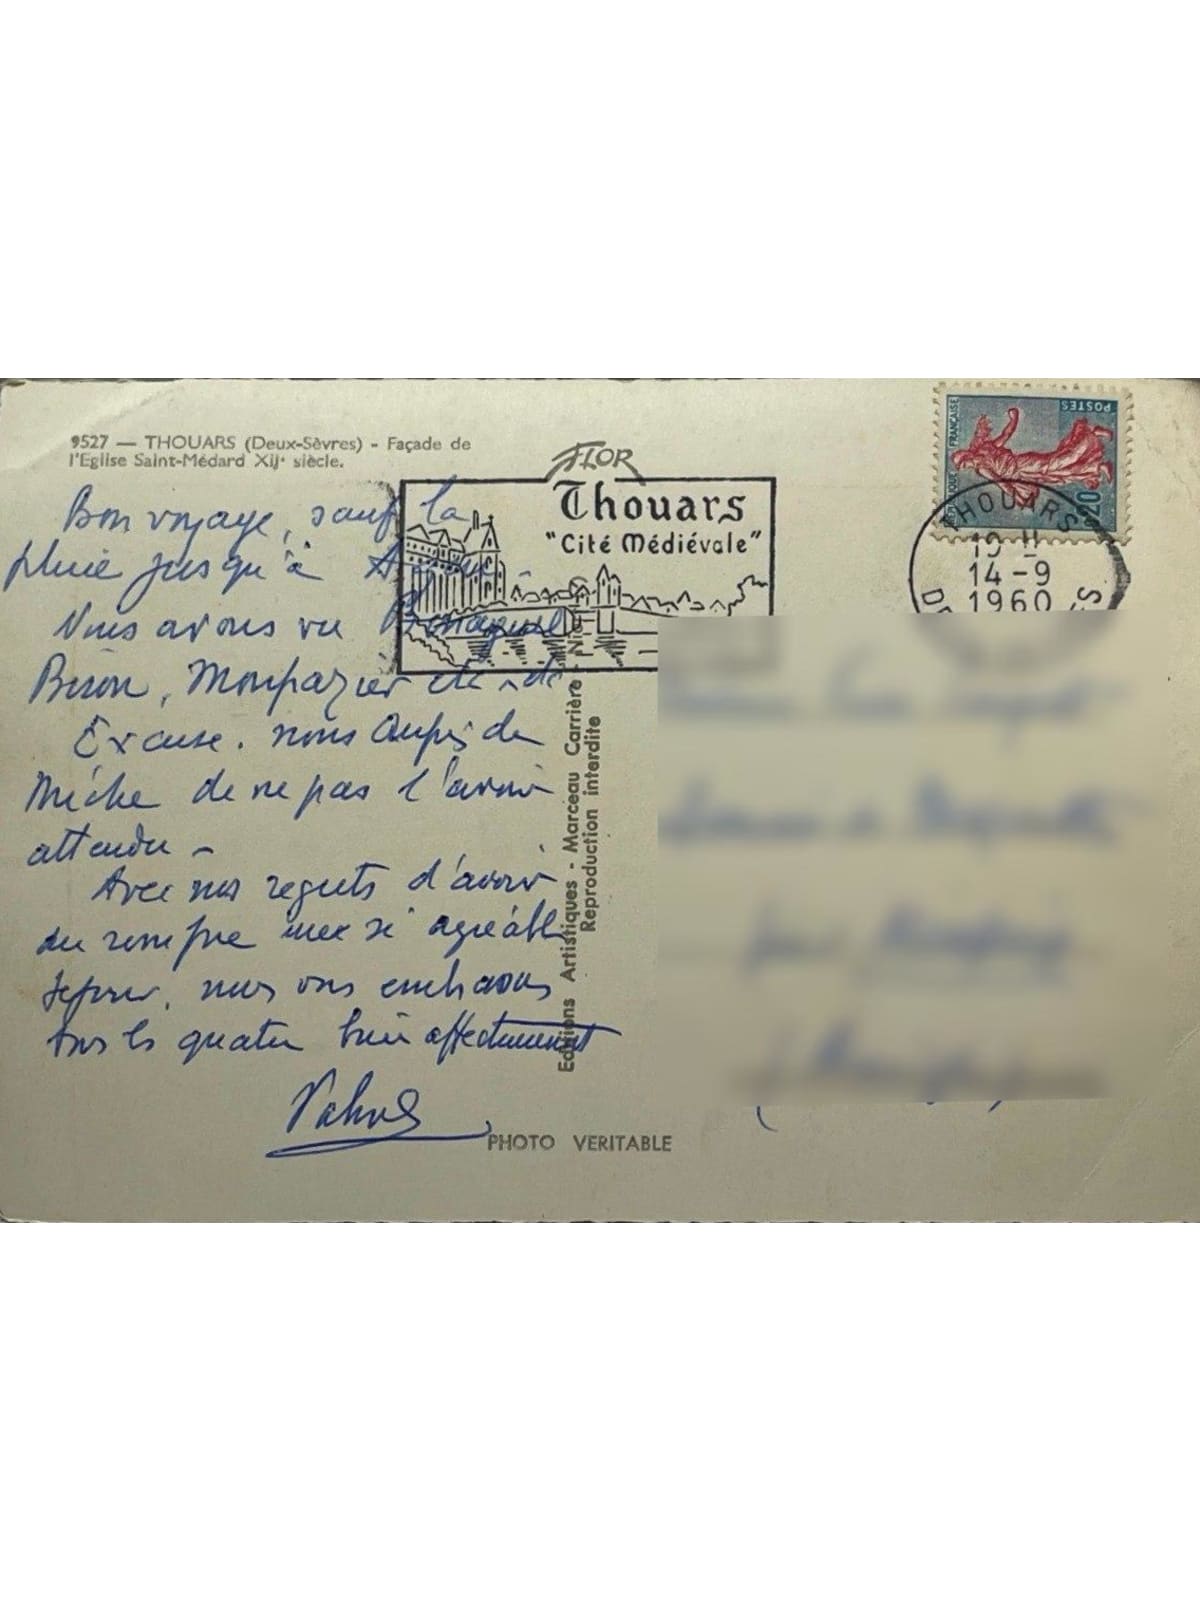 9527 — THOUARS (Deux-Sèvres) - Façade de
l'Eglise Saint-Médard XIIᵉ siècle.
FLOR
Thouars
"Cité Médiévale"
RÉPUBLIQUE FRANÇAISE
POSTES
0,20
THOUARS
14-9
1960
Bon voyage, sauf la
pluie jusqu'à
Nous avons vu Bonaguil
Biron, Monpazier etc
Excuse. nous auprès de
Miche de ne pas l'avoir
attendu -
Avec nos regrets d'avoir
du rompre une si agréable
séjour, nous vous embrassons
tous les quatre bien affectueusement
Editions Artistiques - Marceau Carrière - Niort
Reproduction interdite
PHOTO VERITABLE